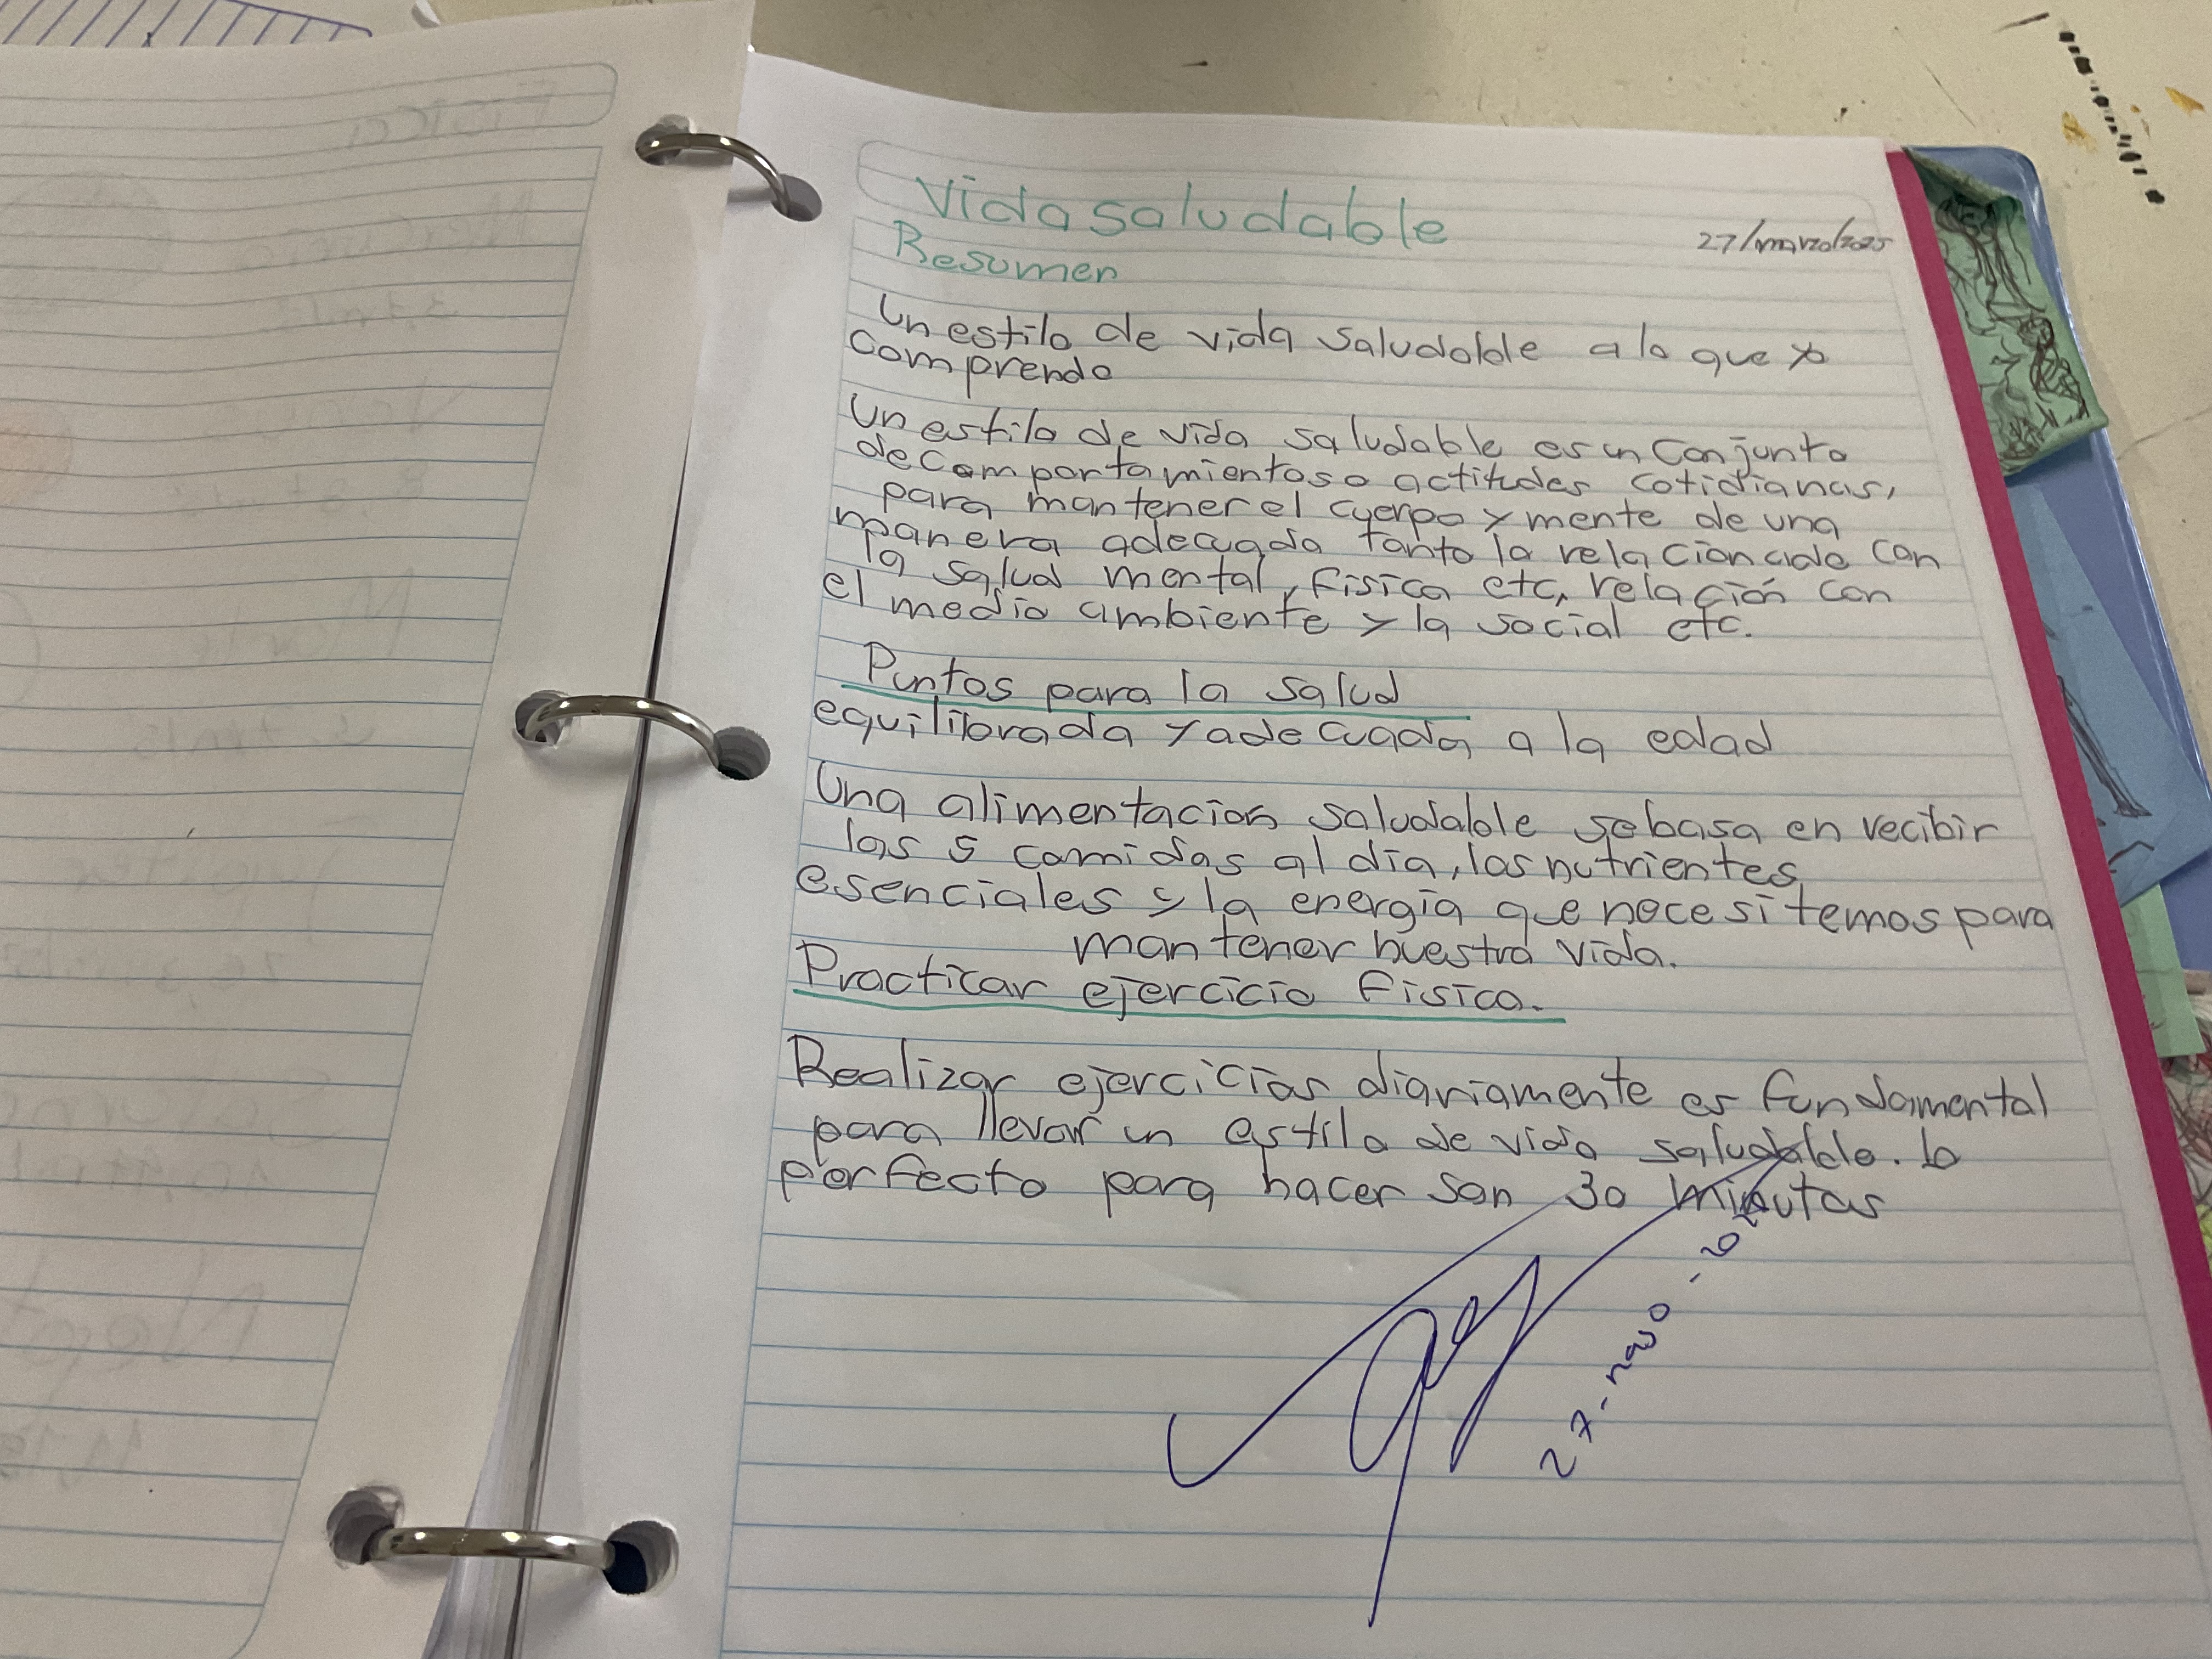 Vida saludable
27/marzo/2025
Resumen
Un estilo de vida saludable a lo que yo
comprendo
Un estilo de vida saludable es un conjunto
de comportamientos o actitudes cotidianas,
para mantener el cuerpo y mente de una
manera adecuada tanto la relacionado con
la salud mental, fisica etc, relación con
el medio ambiente y la social etc.
Puntos para la salud
equilibrada y adecuada a la edad
Una alimentación saludable se basa en recibir
las 5 comidas al día, los nutrientes
esenciales y la energía que necesitemos para
mantener nuestra vida.
Practicar ejercicio físico.
Realizar ejercicios diariamente es fundamental
para llevar un estilo de vida saludable. lo
perfecto para hacer son 30 minutos
27-